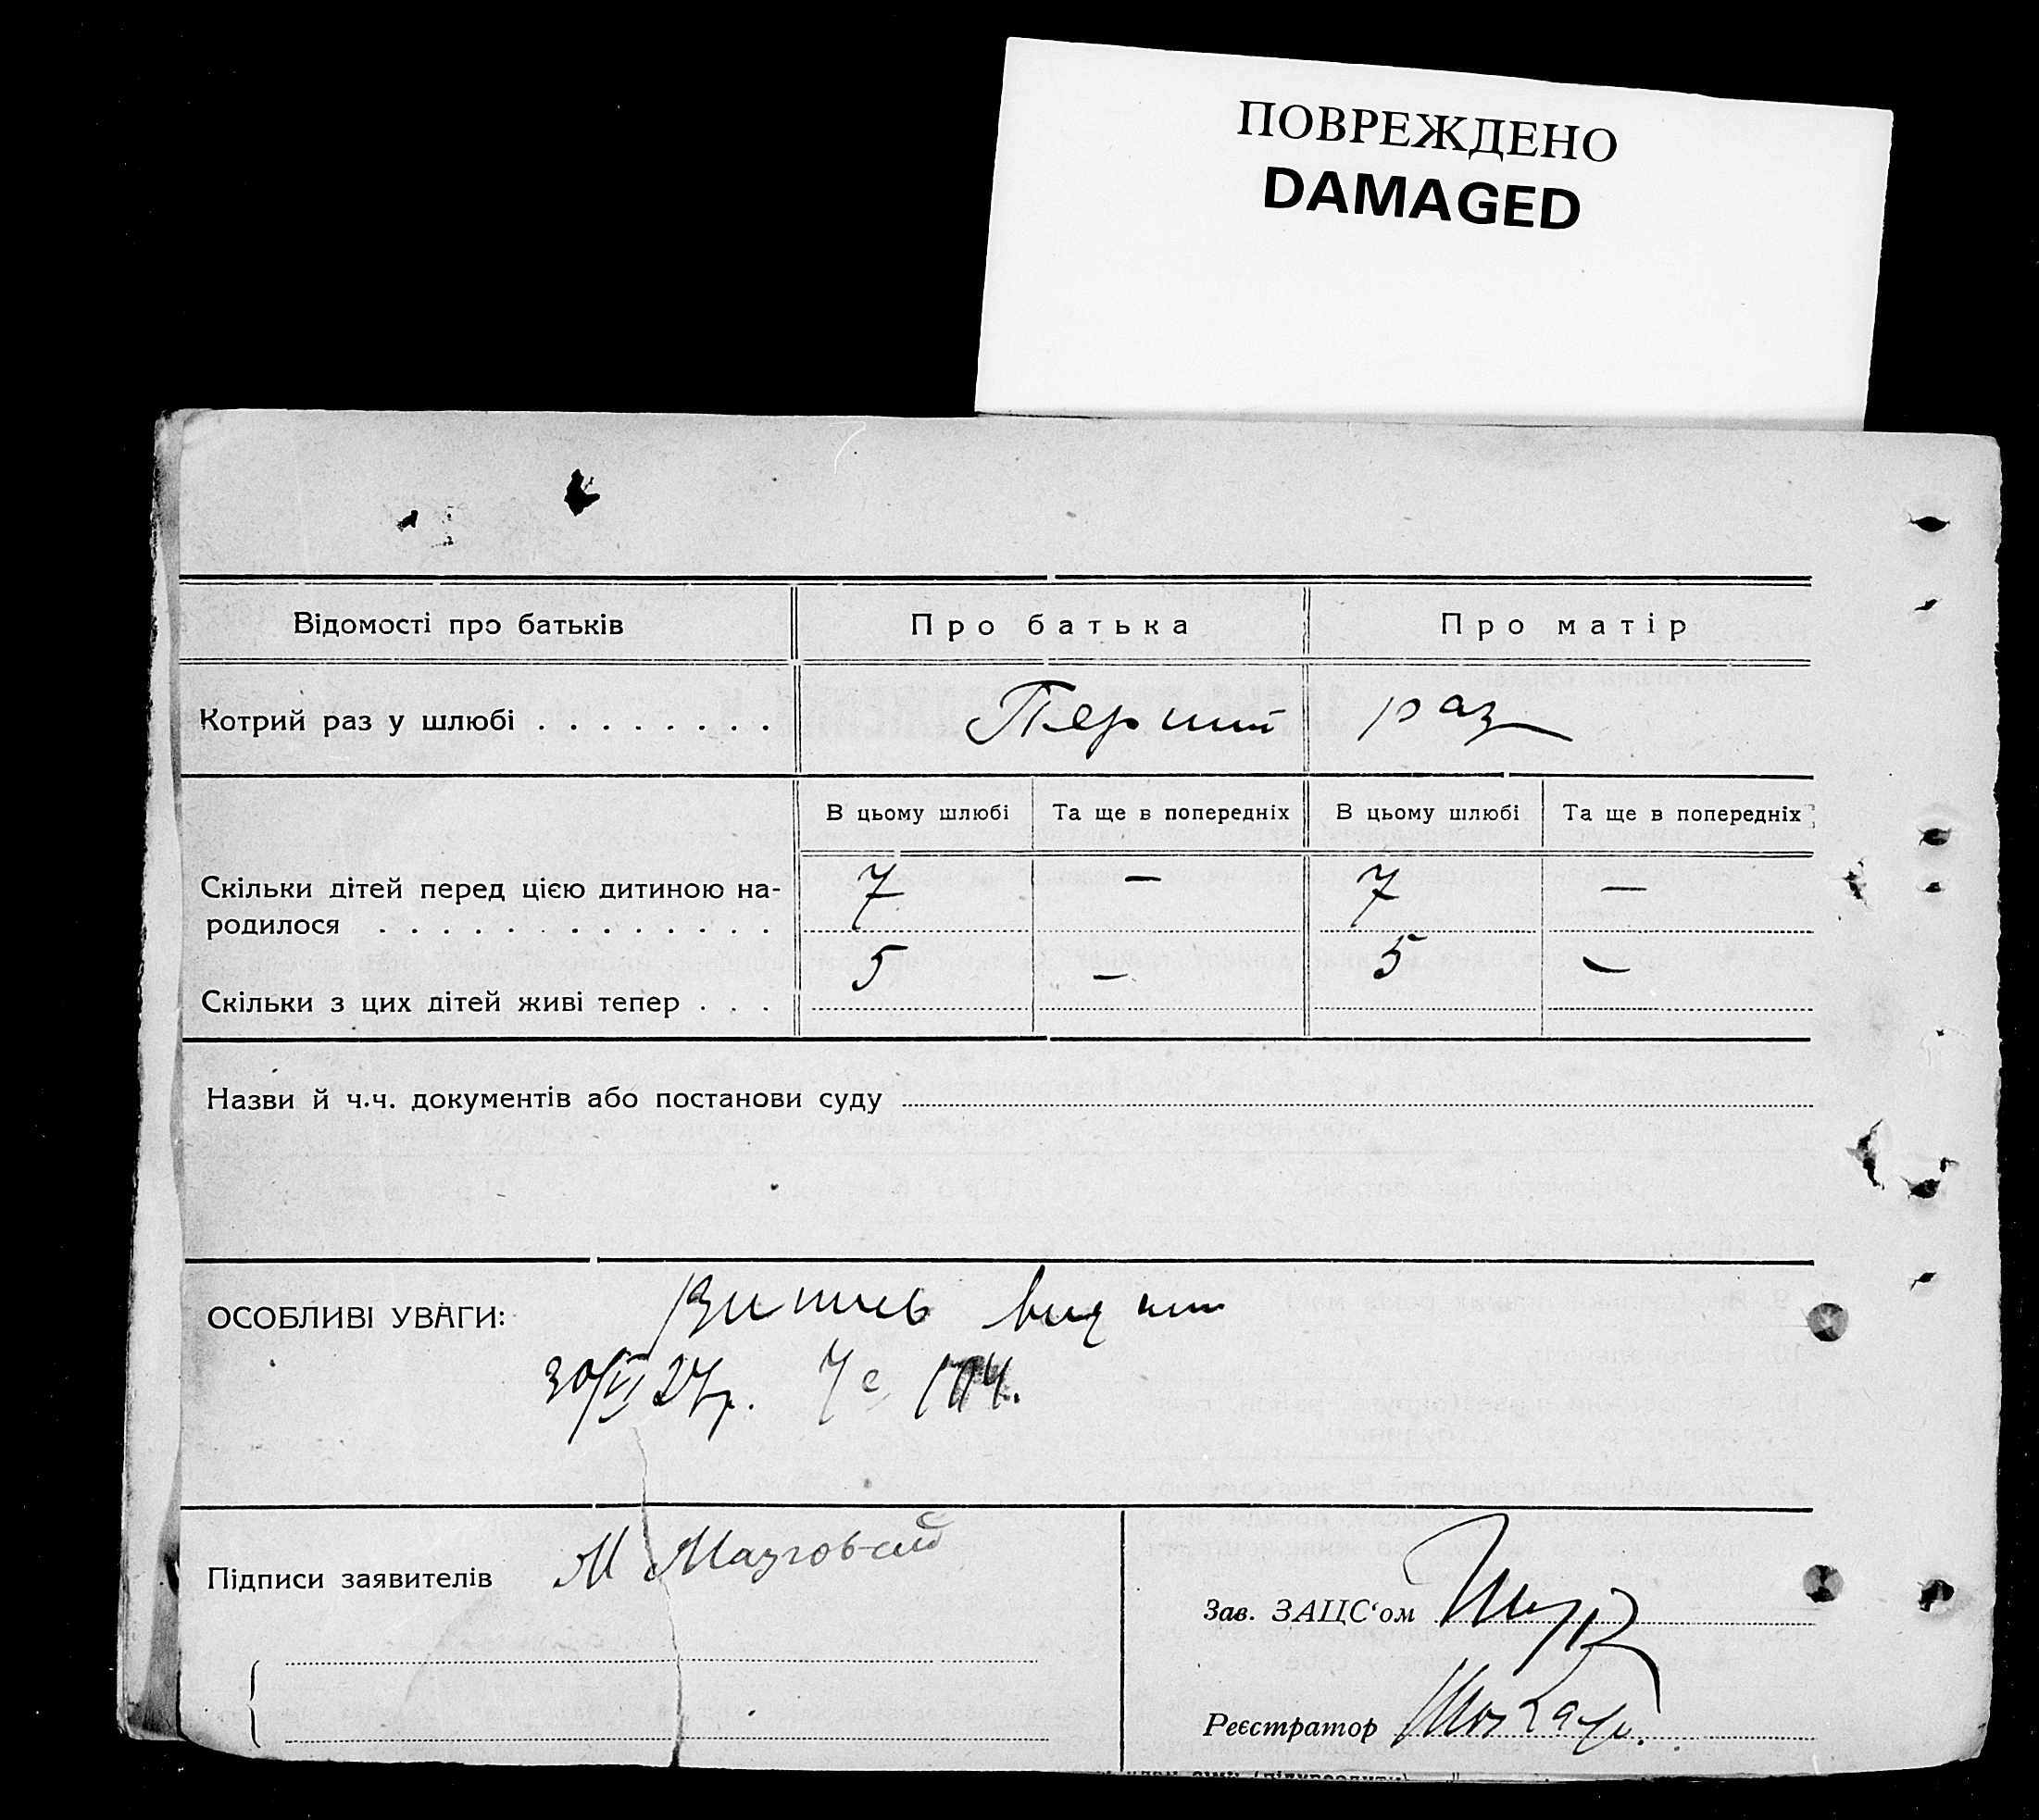 ПОВРЕЖДЕНО
DAMAGED
Відомості про батьків
Про батька
Про матір
Котрий раз у шлюбі . . . . . . . .
Перший раз
В цьому шлюбі
Та ще в попередніх
В цьому шлюбі
Та ще в попередніх
Скільки дітей перед цією дитиною на-
родилося . . . . . . . . . . . . .
7 — 7 —
Скільки з цих дітей живі тепер . . .
5 — 5 —
Назви й ч.ч. документів або постанови суду
ОСОБЛИВІ УВАГИ:
Витяг
30/VI 27р.
Підписи заявителів
М
Зав. ЗАЦС‘ом
Реєстратор